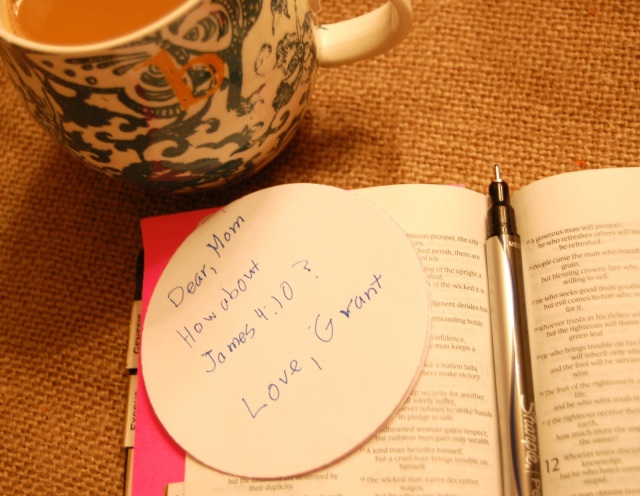 b
Dear, Mom
How about
James 4:10?
Love,
Grant
Sharpie
EXODUS
righteous prosper, the city
wicked perish, there are
of joy.
of the upright a
of the wicked it is
judgment derides his
understanding holds
confidence,
man keeps a
a nation falls,
makes victory
up security for another
surely suffer,
whoever refuses to strike hands
in pledge is safe.
kindhearted woman gains respect,
but ruthless men gain only wealth.
A kind man benefits himself,
but a cruel man brings trouble on
himself.
The wicked man earns deceptive
wages,
destroyed by
their duplicity.
A generous man will prosper;
he who refreshes others will
be refreshed.
People curse the man who hoards
grain,
but blessing crowns him who
willing to sell.
He who seeks good finds goodwill
but evil comes to him who
for it.
Whoever trusts in his riches will
but the righteous will thrive
green leaf.
He who brings trouble on his
will inherit only wind,
and the fool will be servant
wise.
The fruit of the righteous is
life,
and he who wins souls
If the righteous receive their
earth,
how much more the
the sinner!
12
Whoever loves discipline
knowledge,
but he who hates